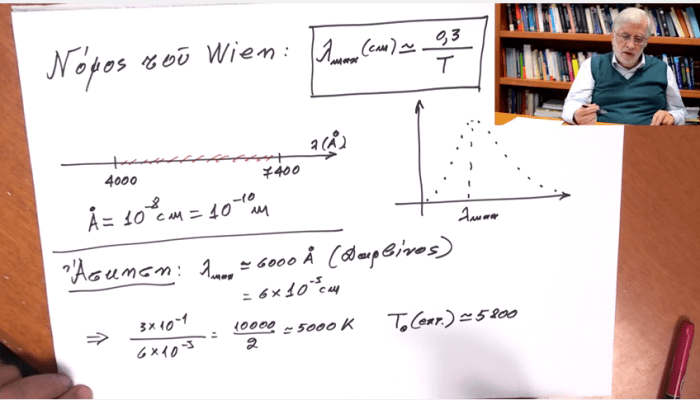 Νόμος τοῦ Wien: λmax (cm) ≃ 0,3 / T
λ(Å)
4000 7400
Å = 10⁻⁸ cm = 10⁻¹⁰ m
λmax
Ἄσκηση: λmax ≃ 6000 Å (Δαρβίνος)
= 6 × 10⁻⁵ cm
⇒ 3×10⁻¹ / 6×10⁻⁵ = 10000 / 2 ≃ 5000 K T₀ (επτ.) ≃ 5800